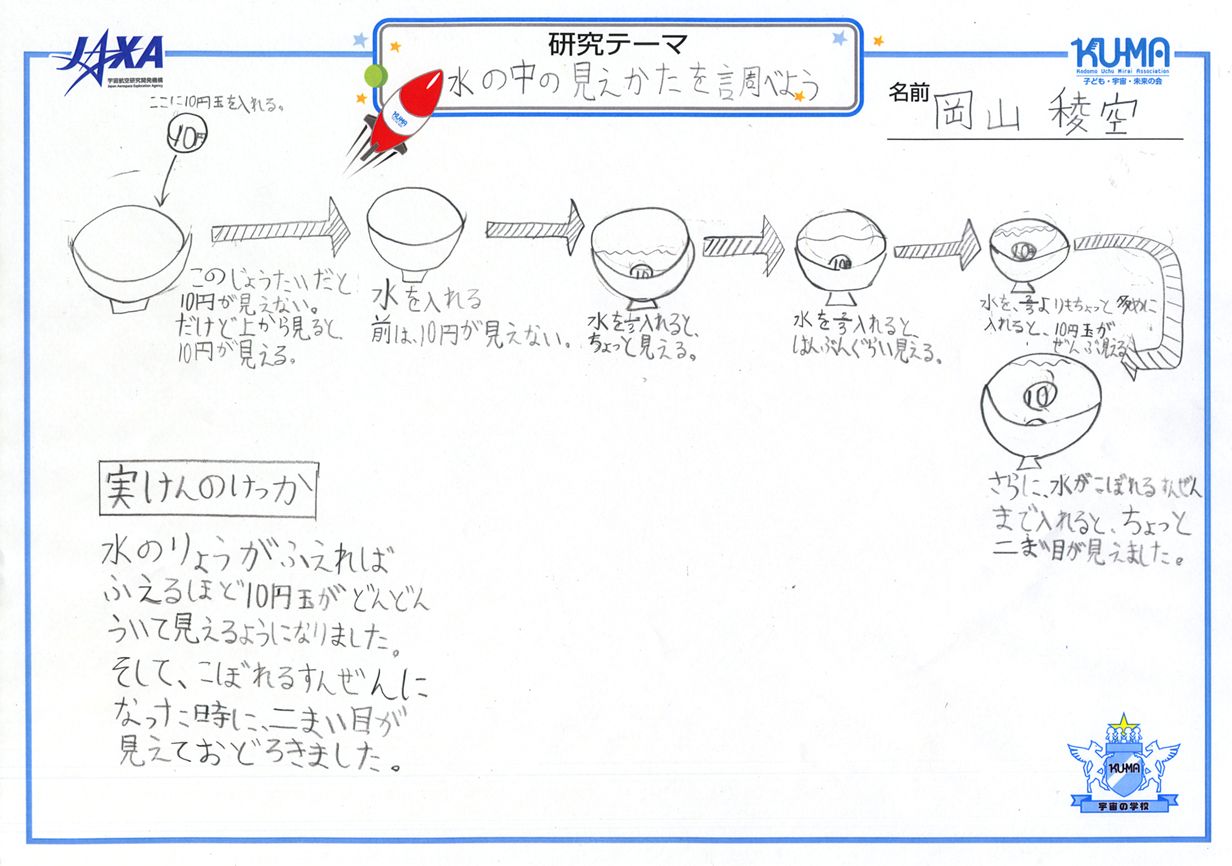 JAXA
宇宙航空研究開発機構
Japan Aerospace Exploration Agency
研究テーマ
水の中の見えかたを調べよう
KUMA
Kodomo Uchu Mirai Association
子ども・宇宙・未来の会
名前 岡山 稜空
ここに10円玉を入れる。
10円
このじょうたいだと
10円が見えない。
だけど上から見ると
10円が見える。
水を入れる
前は、10円が見えない。
10
水を1/3入れると、
ちょっと見える。
10
水を2/3入れると、
はんぶんぐらい見える。
10
水を、2/3よりもちょっと多めに
入れると、10円玉が
ぜんぶ見える
10
さらに、水がこぼれるすんぜん
まで入れると、ちょっと
二まい目が見えました。
実けんのけっか
水のりょうがふえれば
ふえるほど10円玉がどんどん
ういて見えるようになりました。
そして、こぼれるすんぜんに
なった時に、二まい目が
見えておどろきました。
KUMA
宇宙の学校